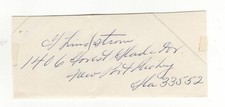 G Lundstrom
1406 Forest Glade Dr.
New Port Richey
Fla 33552